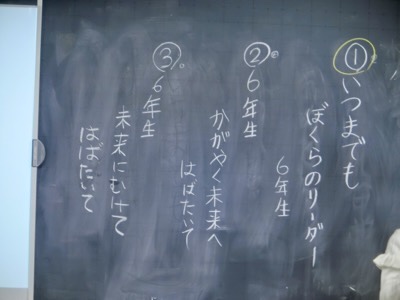 ①いつまでも
ぼくらのリーダー
6年生
②6年生
かがやく未来へ
はばたいて
③6年生
未来にむけて
はばたいて